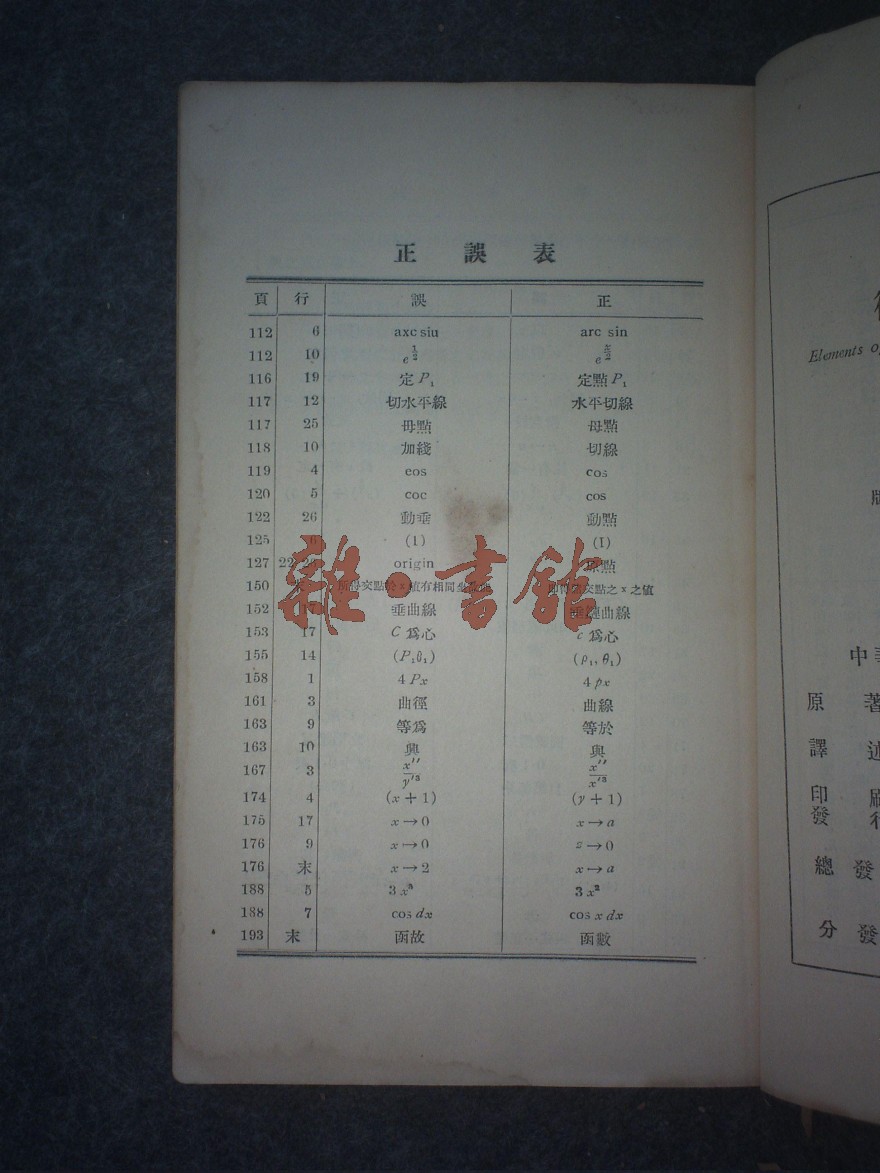 正 誤 表
頁 行 誤 正
112 6 axc siu arc sin
112 10 e^{1/2}
116 19 定 P₁ 定點 P₁
117 12 切水平線 水平切線
117 25 母點 母點
118 10 加綫 切線
119 4 eos cos
120 5 coc cos
122 26 動垂 動點
125 6 (1) (I)
127 origin 原點
150 末
152 17 垂曲線 垂鏈曲線
153 17 C 爲心 c 爲心
155 14 (P₁θ₁) (ρ₁, θ₁)
158 1 4 Px 4 px
161 3 曲徑 曲線
163 9 等爲 等於
163 10 興 與
167 3 x''/y'² x''/x'²
174 4 (x + 1) (y + 1)
175 17 x→0 x→a
176 9 x→0 z→0
176 末 x→2 x→a
188 5 3 x³ 3 x²
188 7 cos dx cos x dx
193 末 函故 函數
雜·書館
Elements o
版
中華
原 著
譯 述
印 刷
發 行
總 發
分 發